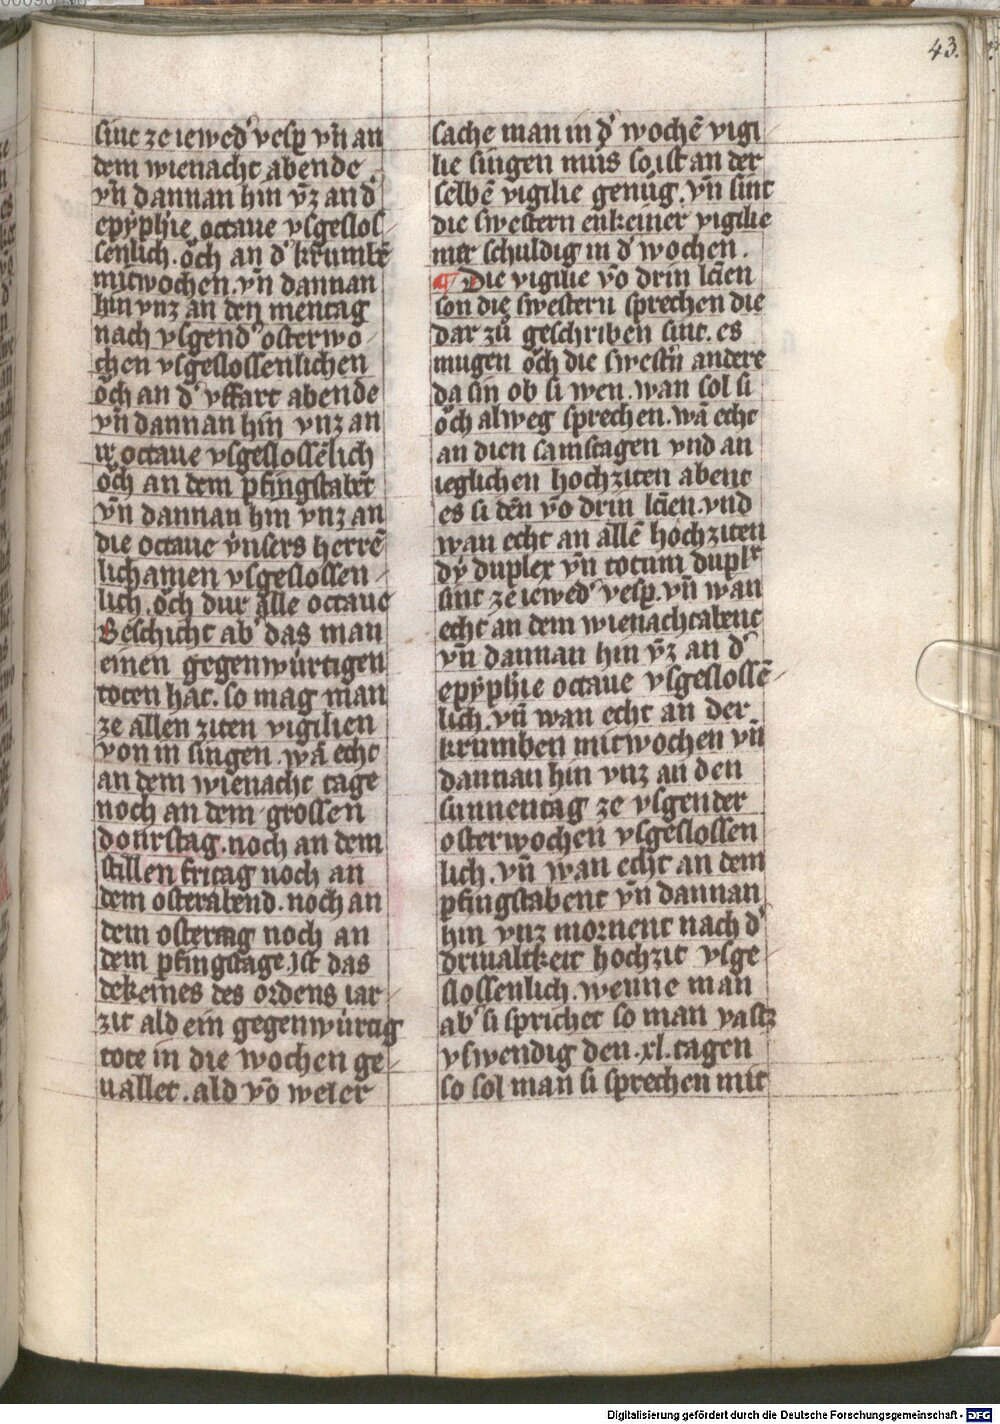 43.
sint ze iewed' vesp̄ vn̄ an
dem wienacht abende.
vn̄ dannan hin vn̄z an d'
epyphie octaue vsgeslos
senlich. o̍ch an d' krumbē
mitwochen. vn̄ dannan
hin vnz an den mentag
nach vsgend' osterwo
chen vsgeslossenlichen
o̍ch an d' vffart abende
vn̄ dannan hin vnz an
ir octaue vsgeslossēlich
o̍ch an dem pfingstabēt
vn̄ dannan hin vnz an
die octaue vnsers herrē
lichamen vsgeslossen
lich. o̍ch dur alle octaue
Beschicht ab' das man
einen gegenwúrtigen
toten hat. so mag man
ze allen ziten vigilien
von in singen. wā echt
an dem wienacht tage
noch an dem grossen
donrstag. noch an dem
stillen fritag noch an
dem osterabend. noch an
dem ostertag noch an
dem pfingstage. Ist das
dekeines des ordens iar
zit ald ein gegenwúrtig
tote in die wochen ge
uallet. ald vō weler
sache man in d' wochē vigi
lie singen můs so ist an der
selbē vigilie genůg. vn̄ sint
die swestern enkeiner vigilie
mer schuldig in d' wochen.
¶ Die vigilie vō drin lc̄ien
son die swestern sprechen die
dar zů geschriben sint. es
mugen o̍ch die swestn̄ andere
da sin ob si wen. wan sol si
o̍ch alweg sprechen. wā echt
an dien samstagen vnd an
ieglichen hochziten abent
es si dēn vō drin lc̄ien. vnd
wan echt an allē hochziten
dỳ duplex vn̄ totum duplr
sint ze iewed' vesp̄. vn̄ wan
echt an dem wienachtabent
vn̄ dannan hin vn̄z an d'
epyphie octaue vsgeslossē
lich. vn̄ wan echt an der
krumben mitwochen vn̄
dannan hin vnz an den
sunnentag ze vsgender
osterwochen vsgeslossen
lich. vn̄ wan echt an dem
pfingstabent vn̄ dannan
hin vnz mornent nach d'
driualtkeit hochzit vsge
slossenlich. wenne man
ab' si sprichet so man vastz
vswendig den .xl. tagen
so sol man si sprechen mit
Digitalisierung gefördert durch die Deutsche Forschungsgemeinschaft - DFG